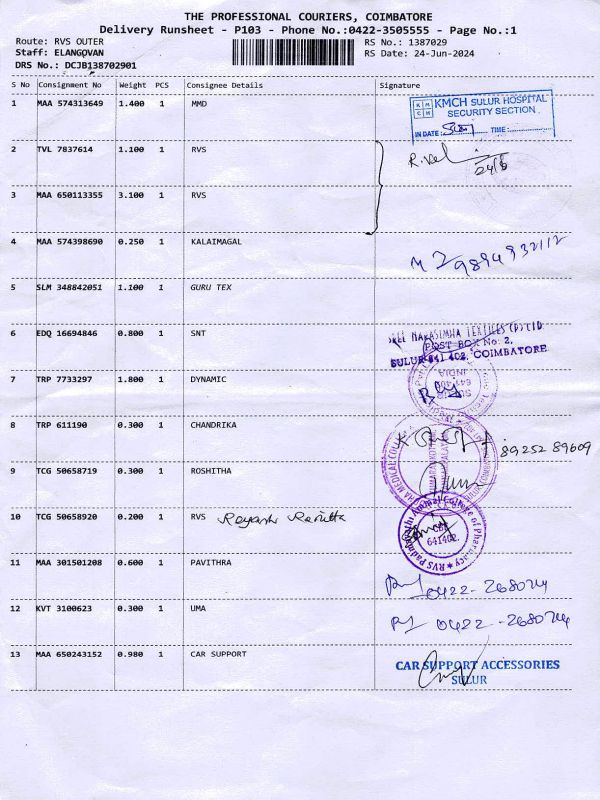 THE PROFESSIONAL COURIERS, COIMBATORE
Delivery Runsheet - P103 - Phone No.:0422-3505555 - Page No.:1
Route: RVS OUTER
Staff: ELANGOVAN
DRS No.: DCJB138702901
RS No.: 1387029
RS Date: 24-Jun-2024
S No Consignment No Weight PCS Consignee Details Signature
1 MAA 574313649 1.400 1 MMD
KMCH SULUR HOSPITAL
SECURITY SECTION
IN DATE : TIME :
2 TVL 7837614 1.100 1 RVS
R.Vel
24/6
3 MAA 650113355 3.100 1 RVS
4 MAA 574398690 0.250 1 KALAIMAGAL
9894932112
5 SLM 348842051 1.100 1 GURU TEX
6 EDQ 16694846 0.800 1 SNT
SREE NARASIMHA TEXTILES (P) LTD
POST BOX No: 2,
SULUR 641 402, COIMBATORE
7 TRP 7733297 1.800 1 DYNAMIC
8 TRP 611190 0.300 1 CHANDRIKA
89252 89609
9 TCG 50658719 0.300 1 ROSHITHA
10 TCG 50658920 0.200 1 RVS
RVS Padmavathi Ammal College of Pharmacy
641402.
11 MAA 301501208 0.600 1 PAVITHRA
0422-2680714
12 KVT 3100623 0.300 1 UMA
0422-2680714
13 MAA 650243152 0.980 1 CAR SUPPORT
CAR SUPPORT ACCESSORIES
SULUR